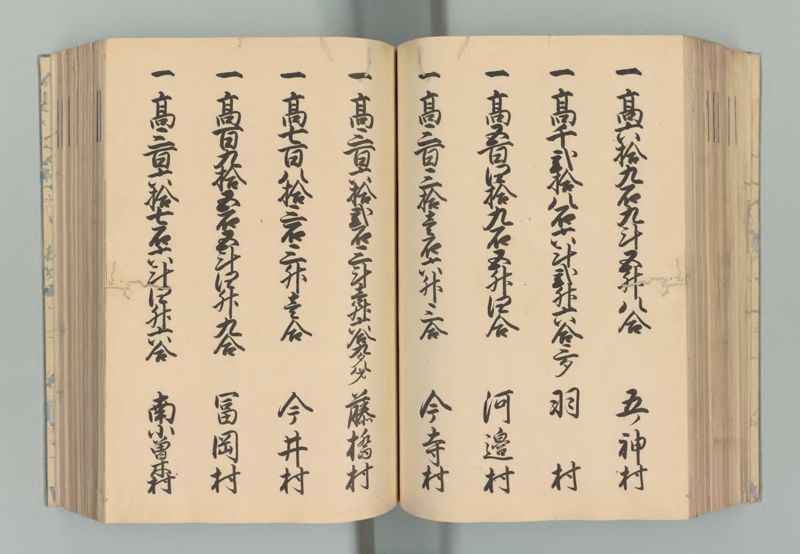 一 高六拾九石九斗五升八合 五ノ神村
一 高千弐拾八石六斗弐升六合三夕 羽村
一 高五百四拾九石五升四合 河邉村
一 高三百三拾壱石六升三合 今寺村
一 高三百六拾弐石三斗壱升六合 藤橋村
一 高七百八拾三石三升壱合 今井村
一 高百九拾五石五斗四升九合 冨岡村
一 高三百六拾七石六斗四升六合 南小曽木村